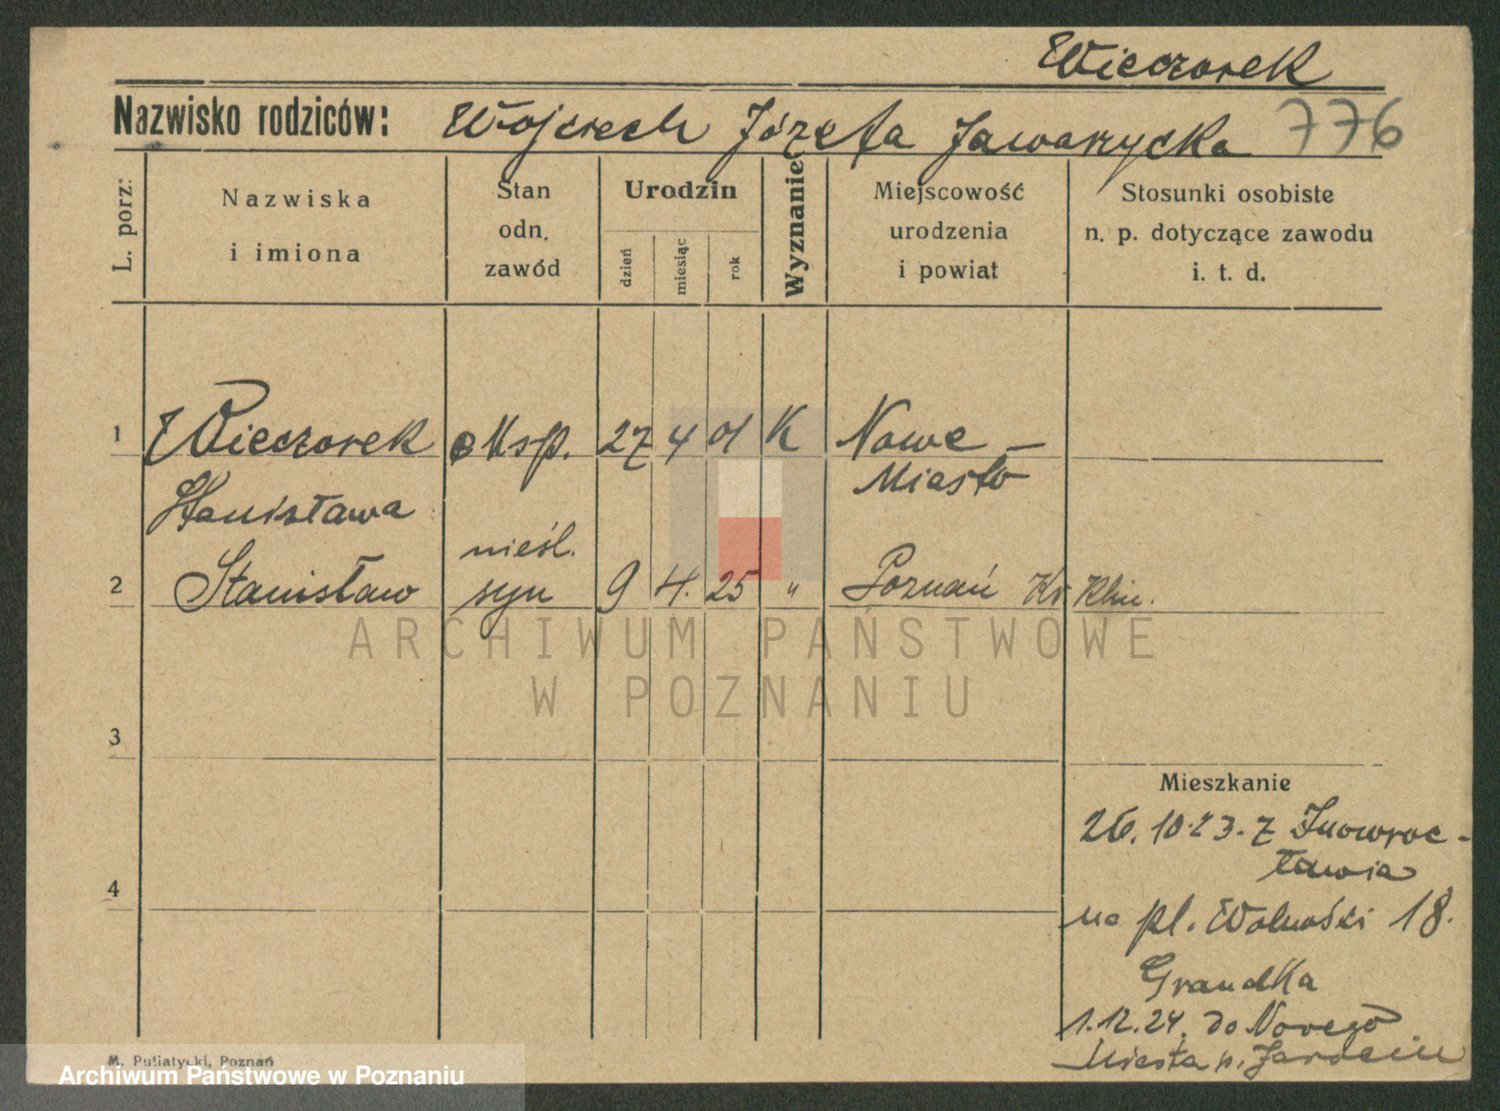 Wieczorek
Nazwisko rodziców: Wojciech Józefa Jaworzycka 776
L. porz: Nazwiska i imiona Stan odn. zawód Urodzin dzień miesiąc rok Wyznanie Miejscowość urodzenia i powiat Stosunki osobiste n. p. dotyczące zawodu i. t. d.
1 Wieczorek eksp. 27 4 01 K Nowe-
Stanisława Miasto
nieśl.
2 Stanisław syn 9 4. 25 " Poznań Kr Klin.
ARCHIWUM PAŃSTWOWE
W POZNANIU
3
Mieszkanie
26.10.23. z Inowroc-
ławia
4
na pl. Wolności 18.
Grandka
1.12.24. do Nowego
Miasta p. Jarocin
M. Putiatycki, Poznań
Archiwum Państwowe w Poznaniu